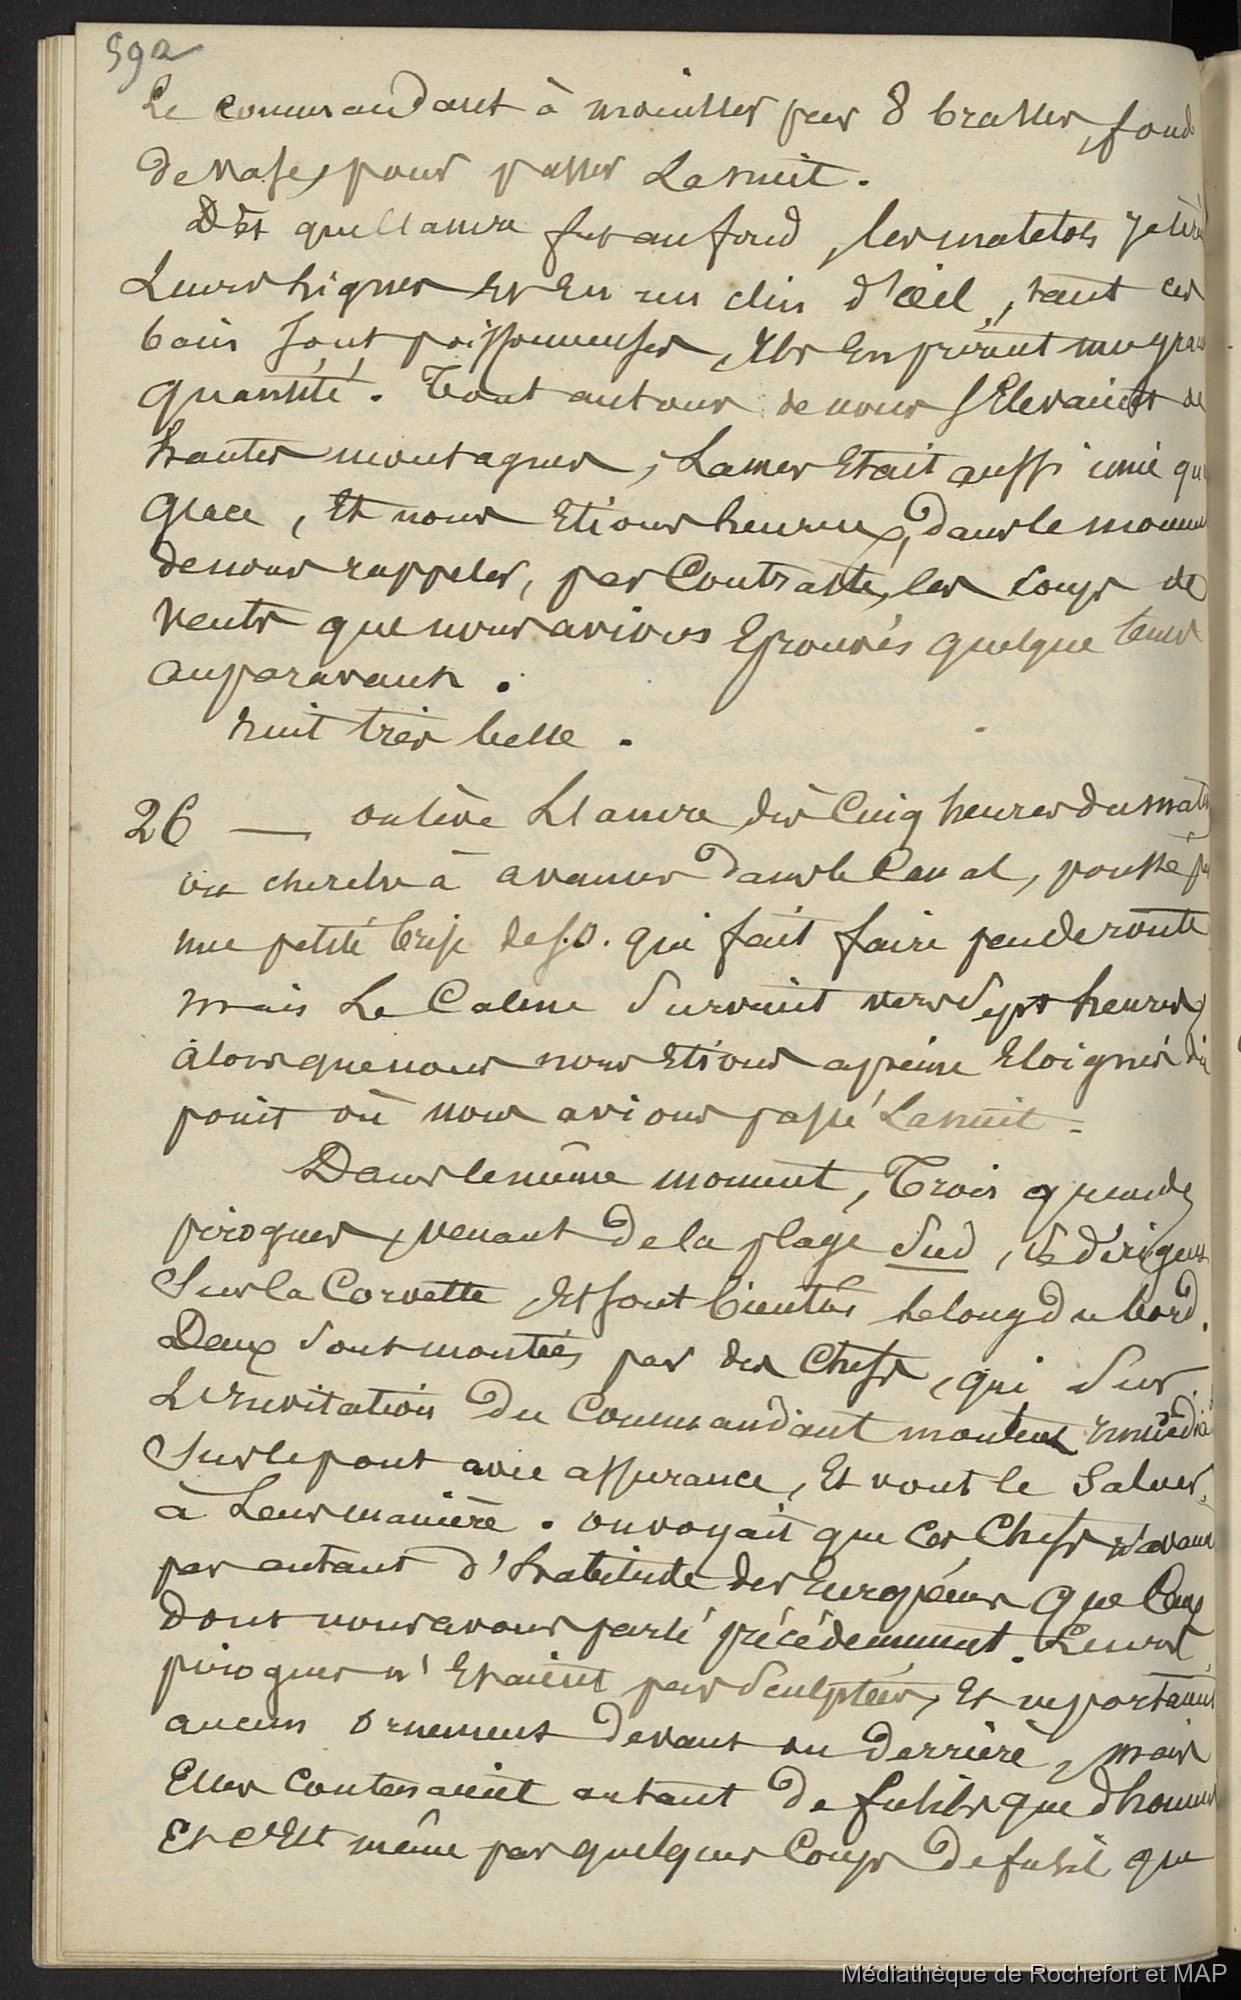 592
Le commandant à mouiller par 8 brasses, fond
de vase, pour passer La nuit.
Dès que l'ancre fut au fond, les matelots jetère
Leurs lignes Et En un clin d'œil, tant ces
bais sont poissonneuses, Ils En prirent une gran
quantité. Tout autour de nous s'Elevaient de
hautes montagnes, La mer Etait aussi unie qu'
glace, Et nous Etions heureux, dans le momen
de nous rappeler, par Contraste, les coups de
vents que nous avions Eprouvés quelque tems
auparavant.
nuit très belle.
26 — on lève L'ancre dès Cinq heures du mati
on cherche à avancer dans le Canal, poussé p
une petite brise de S.O. qui fait faire peu de route
mais Le Calme Survient vers Sept heures,
alors que nous nous Etions a peine Eloignés du
point où nous avions passé La nuit.
Dans le même moment, Trois grandes
pirogues, venant de la plage Sud, se dirigent
Sur la Corvette, Et sont bientôt le long du bord.
Deux Sont montées par des Chefs, qui Sur
L'Invitation du Commandant montent immédia
Sur le pont avec assurance, Et vont le Saluer,
à Leur manière. on voyait que Ces Chefs n'avaient
pas autant d'habitude des Européens que Ceux
dont nous avons parlé précédemment. Leurs
pirogues n'Etaient pas Sculptées, Et ne portaient
aucun ornement devant ou derrière, mais
Elles contenaient autant de fusils que d'hommes
Et c'Est même par quelques Coups de fusil que
Médiathèque de Rochefort et MAP